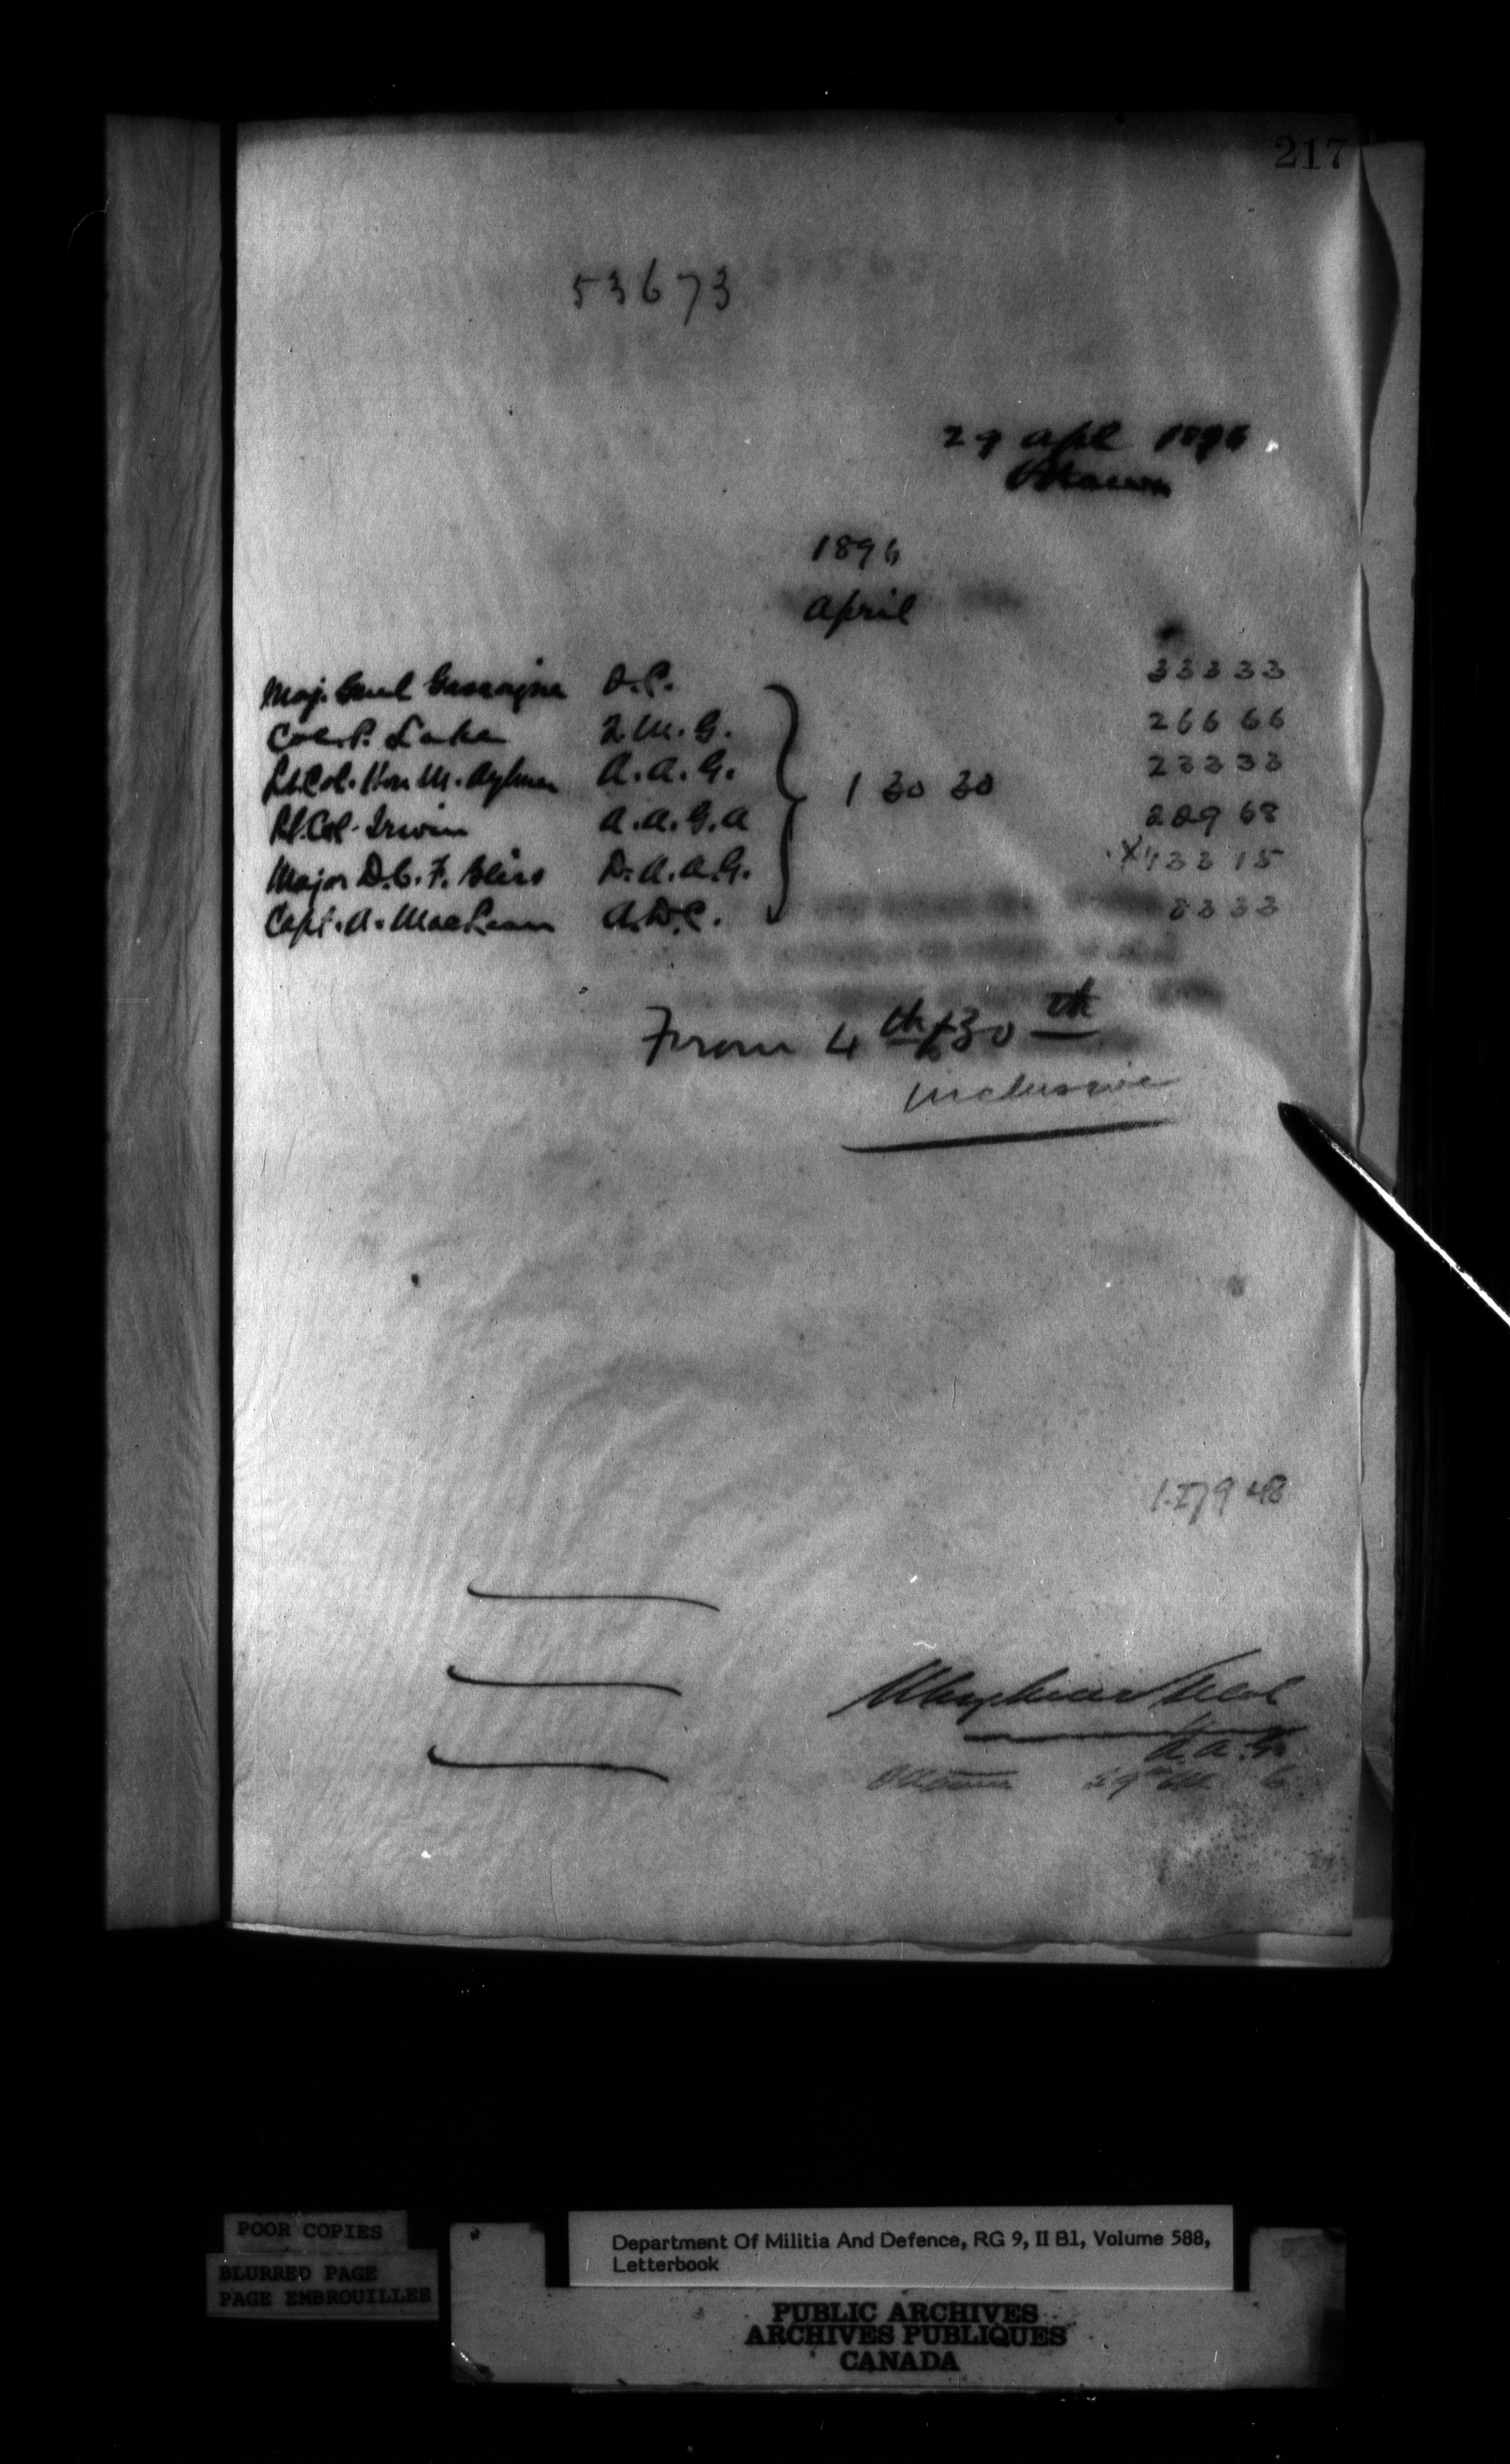 217
53673
29 Apl 1896
Ottawa
1896
April
Maj. Genl Gascoigne D.C. 333 33
Col. P. Lake Q.M.G. 266 66
Lt. Col. Hon M. Aylmer A.A.G. 1 30 30 233 33
Lt. Col. Irwin A.A.G.A 209 68
Major D.C.F. Bliss D.A.A.G. X153 15
Capt. A. MacLean A.D.C. 83 33
From 4th to 30th
inclusive
1.279 48
MAylmer Lt Col
A.A.G.
Ottawa 29
POOR COPIES
BLURRED PAGE
PAGE EMBROUILLEE
Department Of Militia And Defence, RG 9, II B1, Volume 588,
Letterbook
PUBLIC ARCHIVES
ARCHIVES PUBLIQUES
CANADA